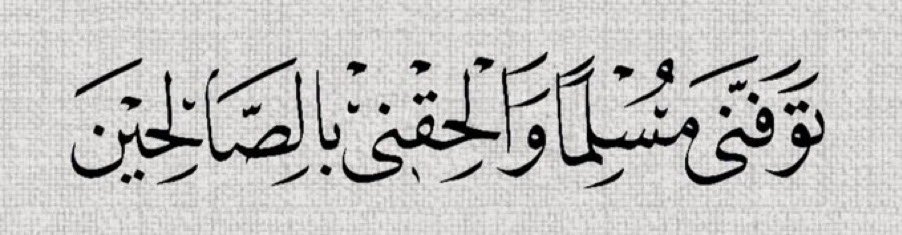 تَوَفَّنَى مُسْلِمًا وَأَلْحِقْنِى بِالصَّالِحِيْنَ